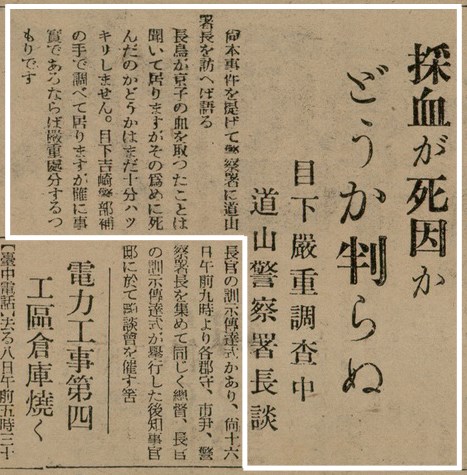 採血が死因か
どうか判らぬ
目下嚴重調査中
道山警察署長談
尙本事件を提げて警察署に道山
署長を訪へば語る
長島が京子の血を取つたことは
聞いて居りますがその爲めに死
んだのかどうかはまだ十分ハツ
キリしません。目下吉崎警部補
の手で調べて居りますが確に事
實であるならば嚴重處分するつ
もりです
長官の訓示傳達式があり、尙十六
日午前九時より各郡守、市尹、警
察署長を集めて同じく總督、長官
の訓示傳達式が擧行した後知事官
邸に於て談會を催す筈
電力工事第四
工區倉庫燒く
【臺中電話】去る八日午前五時三十